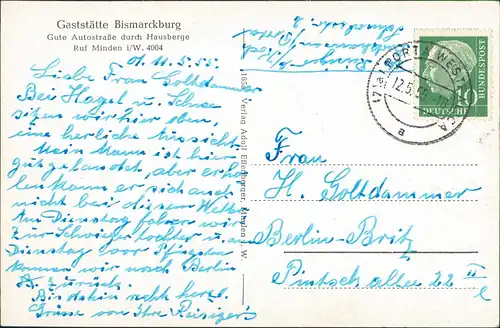 Gaststätte Bismarckburg
Gute Autostraße durch Hausberge
Ruf Minden i/W. 4004
d. 11.5.55.
Liebe Frau Goltdammer
Bei Hagel u. Schnee
sitzen wir hier oben,
eine herliche Aussicht.
Mein Mann ist hier
gut gelandet, aber erho-
len kann er sich auch
nicht bei diesem Wetter
Am Dienstag fahren wir
zur Schwiegertochter u. am
Dienstag vor Pfingsten
kommen wir nach Berlin
zurück.
Bis dahin recht herzl.
Grüsse von Ihre Reisiger's
Verlag Adolf Eftenberger, Minden i. W.
PORTA WESTFALICA
12.5.55
a
DEUTSCHE BUNDESPOST
10
Frau
H. Goltdammer
Berlin-Britz
Pintschallee 22 II
l